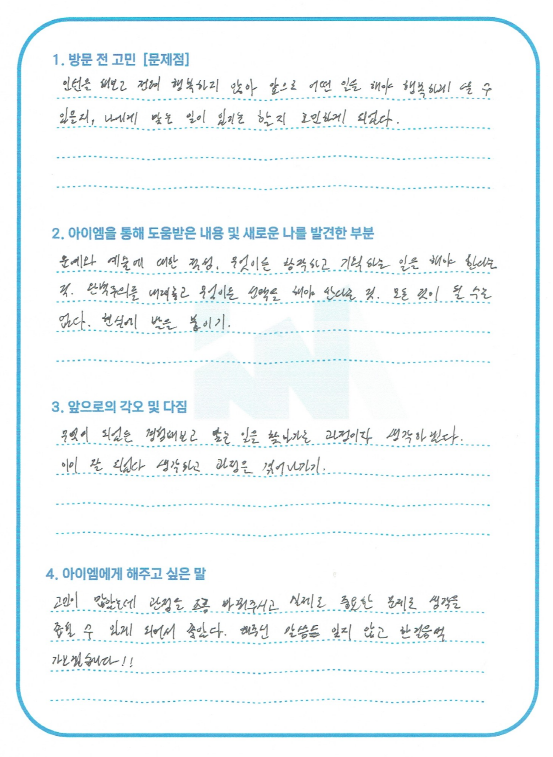 1. 방문 전 고민 [문제점]
인턴을 해보고 전혀 행복하지 않아 앞으로 어떤 일을 해야 행복하게 살 수
있을지, 나에게 맞는 일이 있기는 할지 고민하게 되었다.
2. 아이엠을 통해 도움받은 내용 및 새로운 나를 발견한 부분
문예와 예술에 대한 적성, 무엇이든 창작하고 기획하는 일을 해야 한다는
것. 완벽주의를 내려놓고 무엇이든 선택을 해야 한다는 것. 모든 것이 될 수는
없다. 현실에 발을 붙이기.
3. 앞으로의 각오 및 다짐
무엇이 되었든 경험해보고 맞는 일을 찾아가는 과정이라 생각하겠다.
이미 잘 되었다 생각하고 과정을 겪어나가기.
4. 아이엠에게 해주고 싶은 말
고민이 많았는데 관점을 조금 바꿔주시고 실제로 중요한 문제로 생각을
좁힐 수 있게 되어서 좋았다. 해주신 말씀들 잊지 않고 한걸음씩
가보겠습니다!!